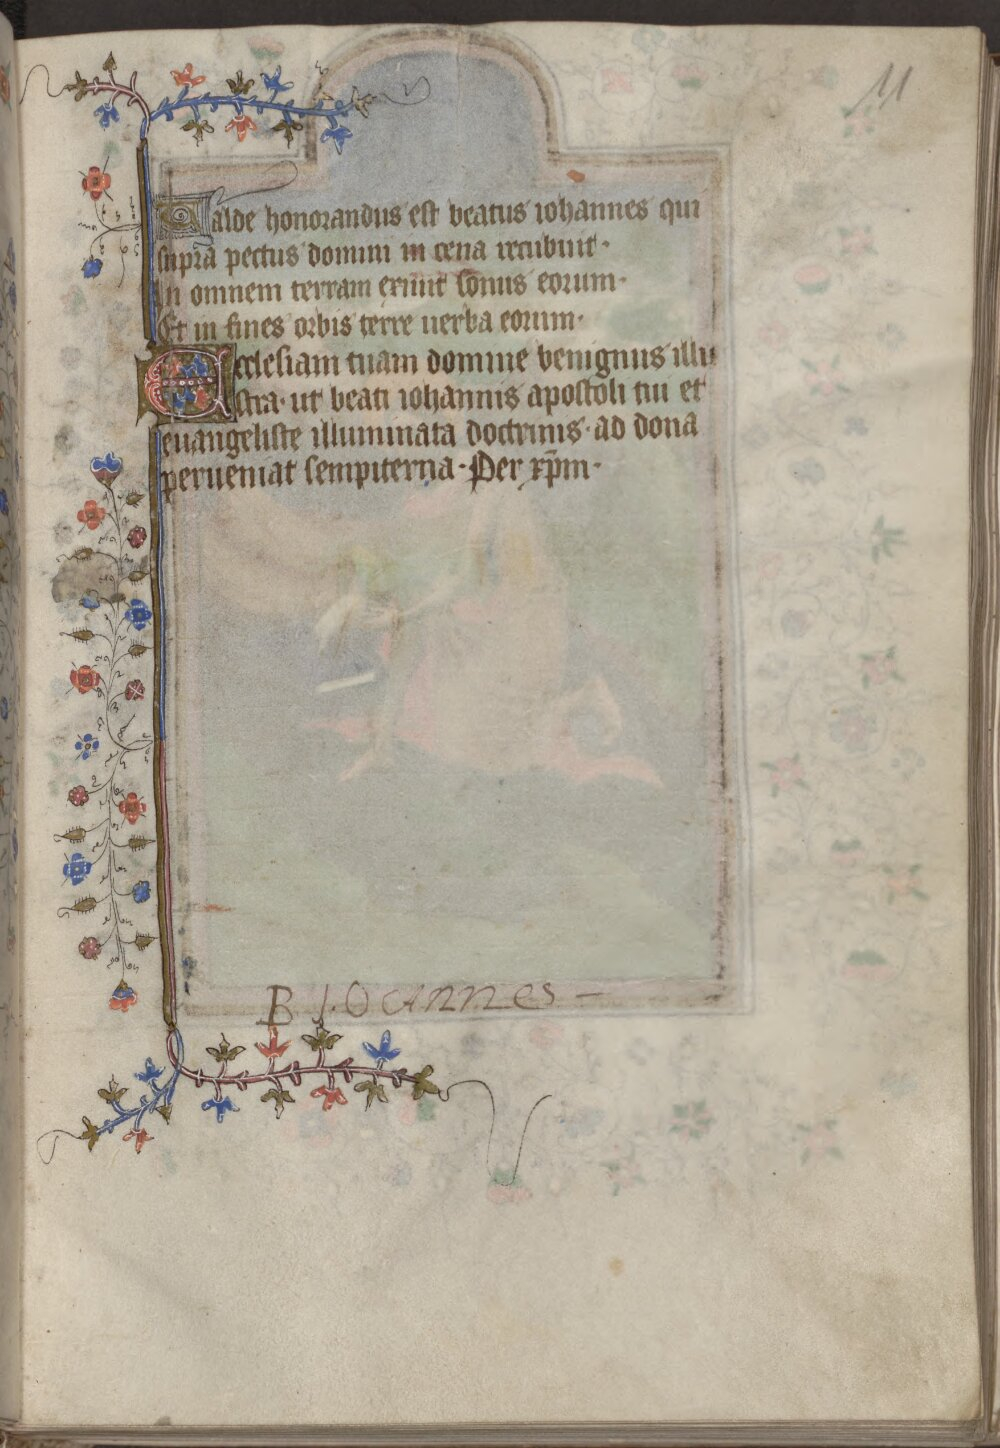 11
Valde honorandus est beatus iohannes qui
supra pectus domini in cena recubuit·
In omnem terram exiuit sonus eorum·
Et in fines orbis terre uerba eorum·
Ecclesiam tuam domine benignus illu
stra· ut beati iohannis apostoli tui et
euangeliste illuminata doctrinis· ad dona
perueniat sempiterna· Per xp̄m·
B IOannes –